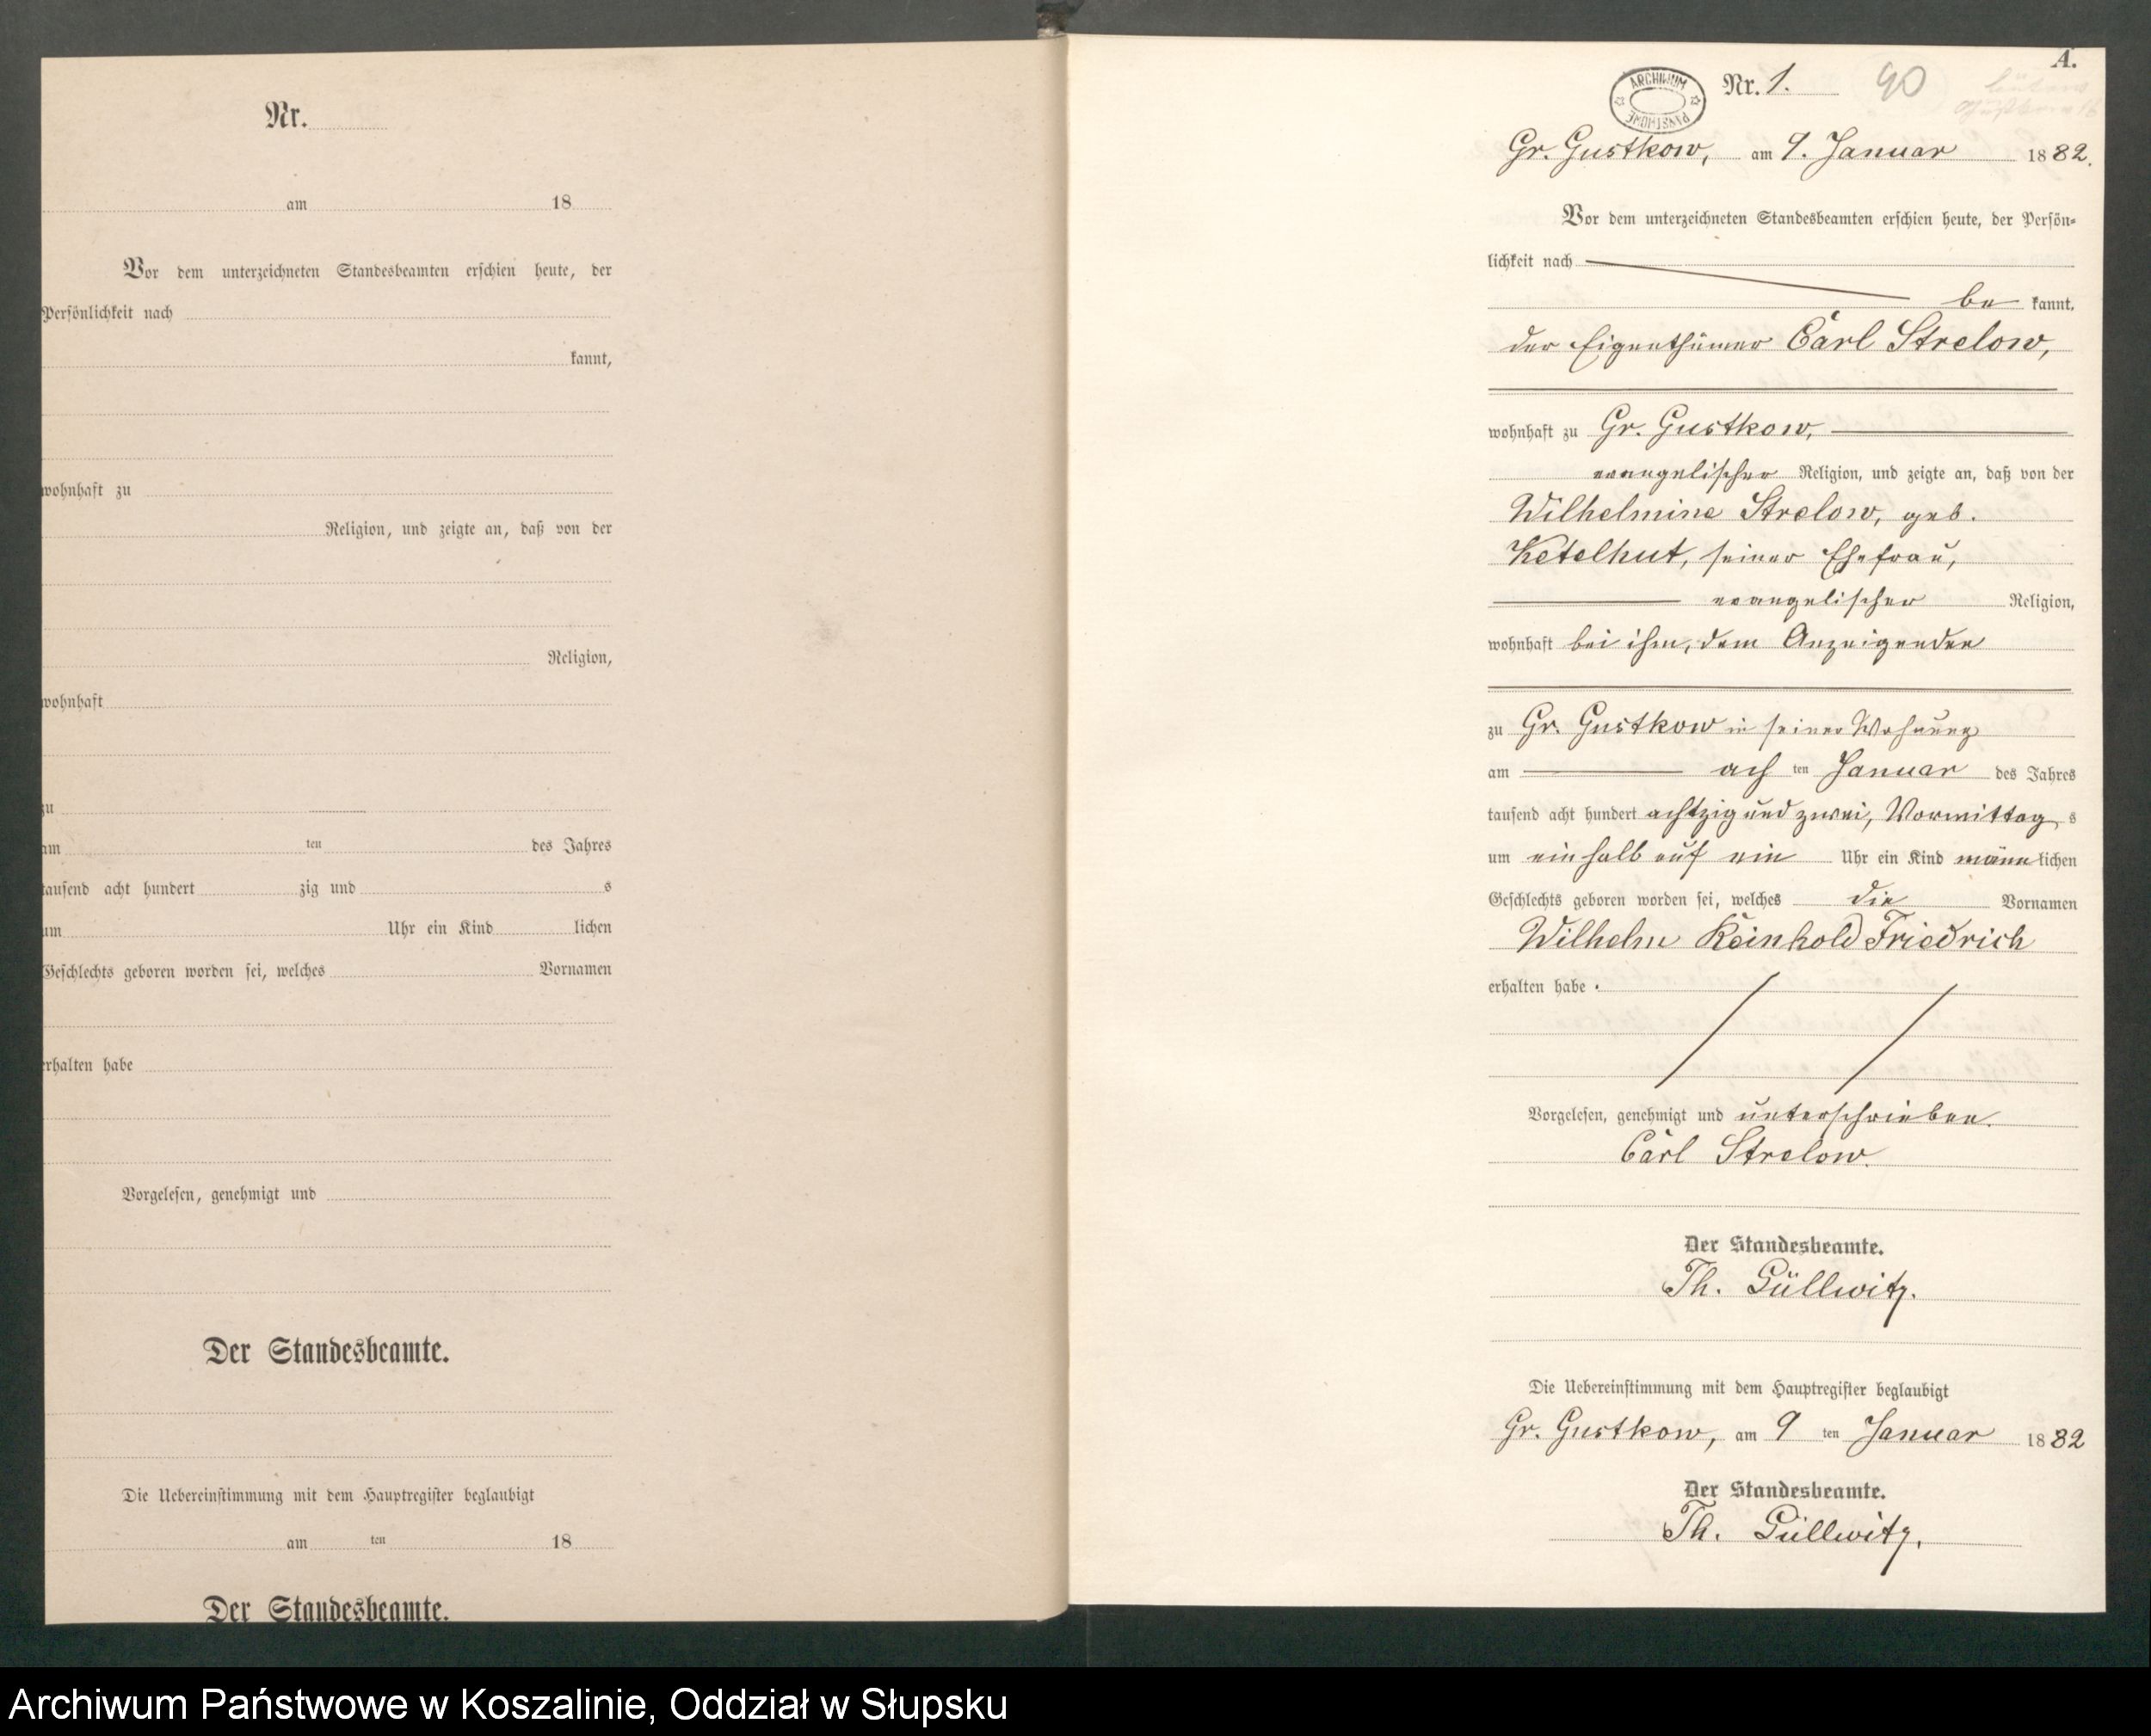 Nr.
am 18
Vor dem unterzeichneten Standesbeamten erschien heute, der
Persönlichkeit nach
kannt,
wohnhaft zu
Religion, und zeigte an, daß von der
Religion,
wohnhaft
zu
am ten des Jahres
tausend acht hundert zig und s
um Uhr ein Kind lichen
Geschlechts geboren worden sei, welches Vornamen
erhalten habe
Vorgelesen, genehmigt und
Der Standesbeamte.
Die Uebereinstimmung mit dem Hauptregister beglaubigt
am ten 18
Der Standesbeamte.
A.
ARCHIWUM PAŃSTWOWE
Nr. 1. 90
Gr. Gustkow, am 9. Januar 1882.
Vor dem unterzeichneten Standesbeamten erschien heute, der Persön-
lichkeit nach
be kannt,
der Eigenthümer Carl Strelow,
wohnhaft zu Gr. Gustkow,
evangelischer Religion, und zeigte an, daß von der
Wilhelmine Strelow, geb.
Ketelhut, seiner Ehefrau,
evangelischer Religion,
wohnhaft bei ihm, dem Anzeigenden
zu Gr. Gustkow in seiner Wohnung
am ach ten Januar des Jahres
tausend acht hundert achtzig und zwei, Vormittag s
um ein halb auf ein Uhr ein Kind männ lichen
Geschlechts geboren worden sei, welches die Vornamen
Wilhelm Reinhold Friedrich
erhalten habe.
Vorgelesen, genehmigt und unterschrieben.
Carl Strelow.
Der Standesbeamte.
Th. Güllwitz.
Die Uebereinstimmung mit dem Hauptregister beglaubigt
Gr. Gustkow, am 9 ten Januar 1882
Der Standesbeamte.
Th. Güllwitz.
Archiwum Państwowe w Koszalinie, Oddział w Słupsku